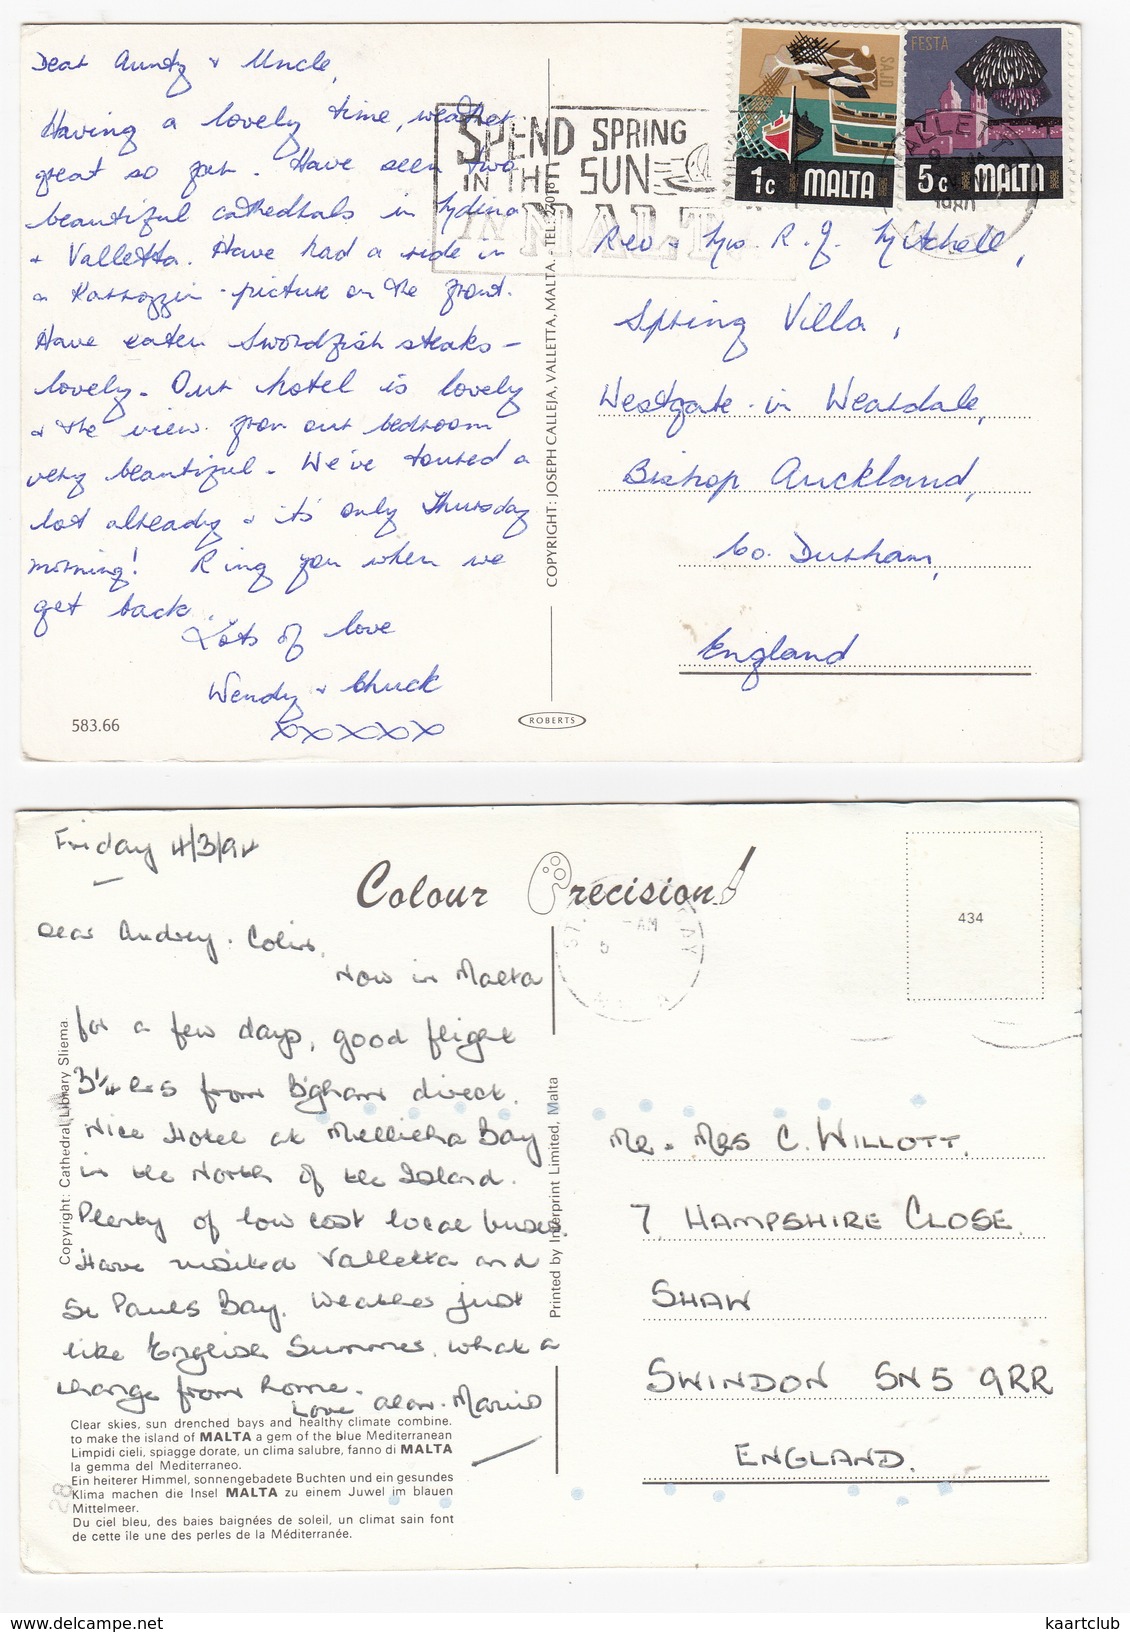 Dear Aunty & Uncle,
Having a lovely time, weather
great so far. Have seen two
beautiful cathedrals in Lydina
& Valletta. Have had a ride in
a Karrozzin - picture on the front.
Have eaten Swordfish steaks -
lovely. Our hotel is lovely
& the view from our bedroom
very beautiful. We've toured a
lot already & it's only Thursday
morning! Ring you when we
get back.
Lots of love
Wendy & Chuck
xxxxx
583.66
COPYRIGHT: JOSEPH CALLEJA, VALLETTA, MALTA. - TEL:
ROBERTS
SPEND SPRING
IN THE SUN
IN MALTA
SAJD
1c MALTA
FESTA
5c MALTA
VALLETTA
1980
Rev & Mrs. R. J. Mitchell,
Spring Villa,
Westgate-in Weardale,
Bishop Auckland,
Co. Durham,
England
Friday 4/3/94
Colour Precision
434
AM
Dear Audrey. Colin,
Now in Malta
for a few days, good flight
3¼ hrs from B'gham direct.
Nice Hotel at Mellieha Bay
in the North of the Island.
Plenty of low cost local buses.
Have visited Valletta and
St Pauls Bay. Weather just
like English Summer, what a
change from home.
Love Alan. Marie
Copyright: Cathedral Library Sliema.
Printed by Interprint Limited, Malta
Mr. Mrs C. WILLOTT.
7 HAMPSHIRE CLOSE
SHAW
SWINDON SN5 9RR
ENGLAND.
Clear skies, sun drenched bays and healthy climate combine.
to make the island of MALTA a gem of the blue Mediterranean
Limpidi cieli, spiagge dorate, un clima salubre, fanno di MALTA
la gemma del Mediterraneo.
Ein heiterer Himmel, sonnengebadete Buchten und ein gesundes
Klima machen die Insel MALTA zu einem Juwel im blauen
Mittelmeer.
Du ciel bleu, des baies baignées de soleil, un climat sain font
de cette île une des perles de la Méditerranée.
28
www.delcampe.net
kaartclub